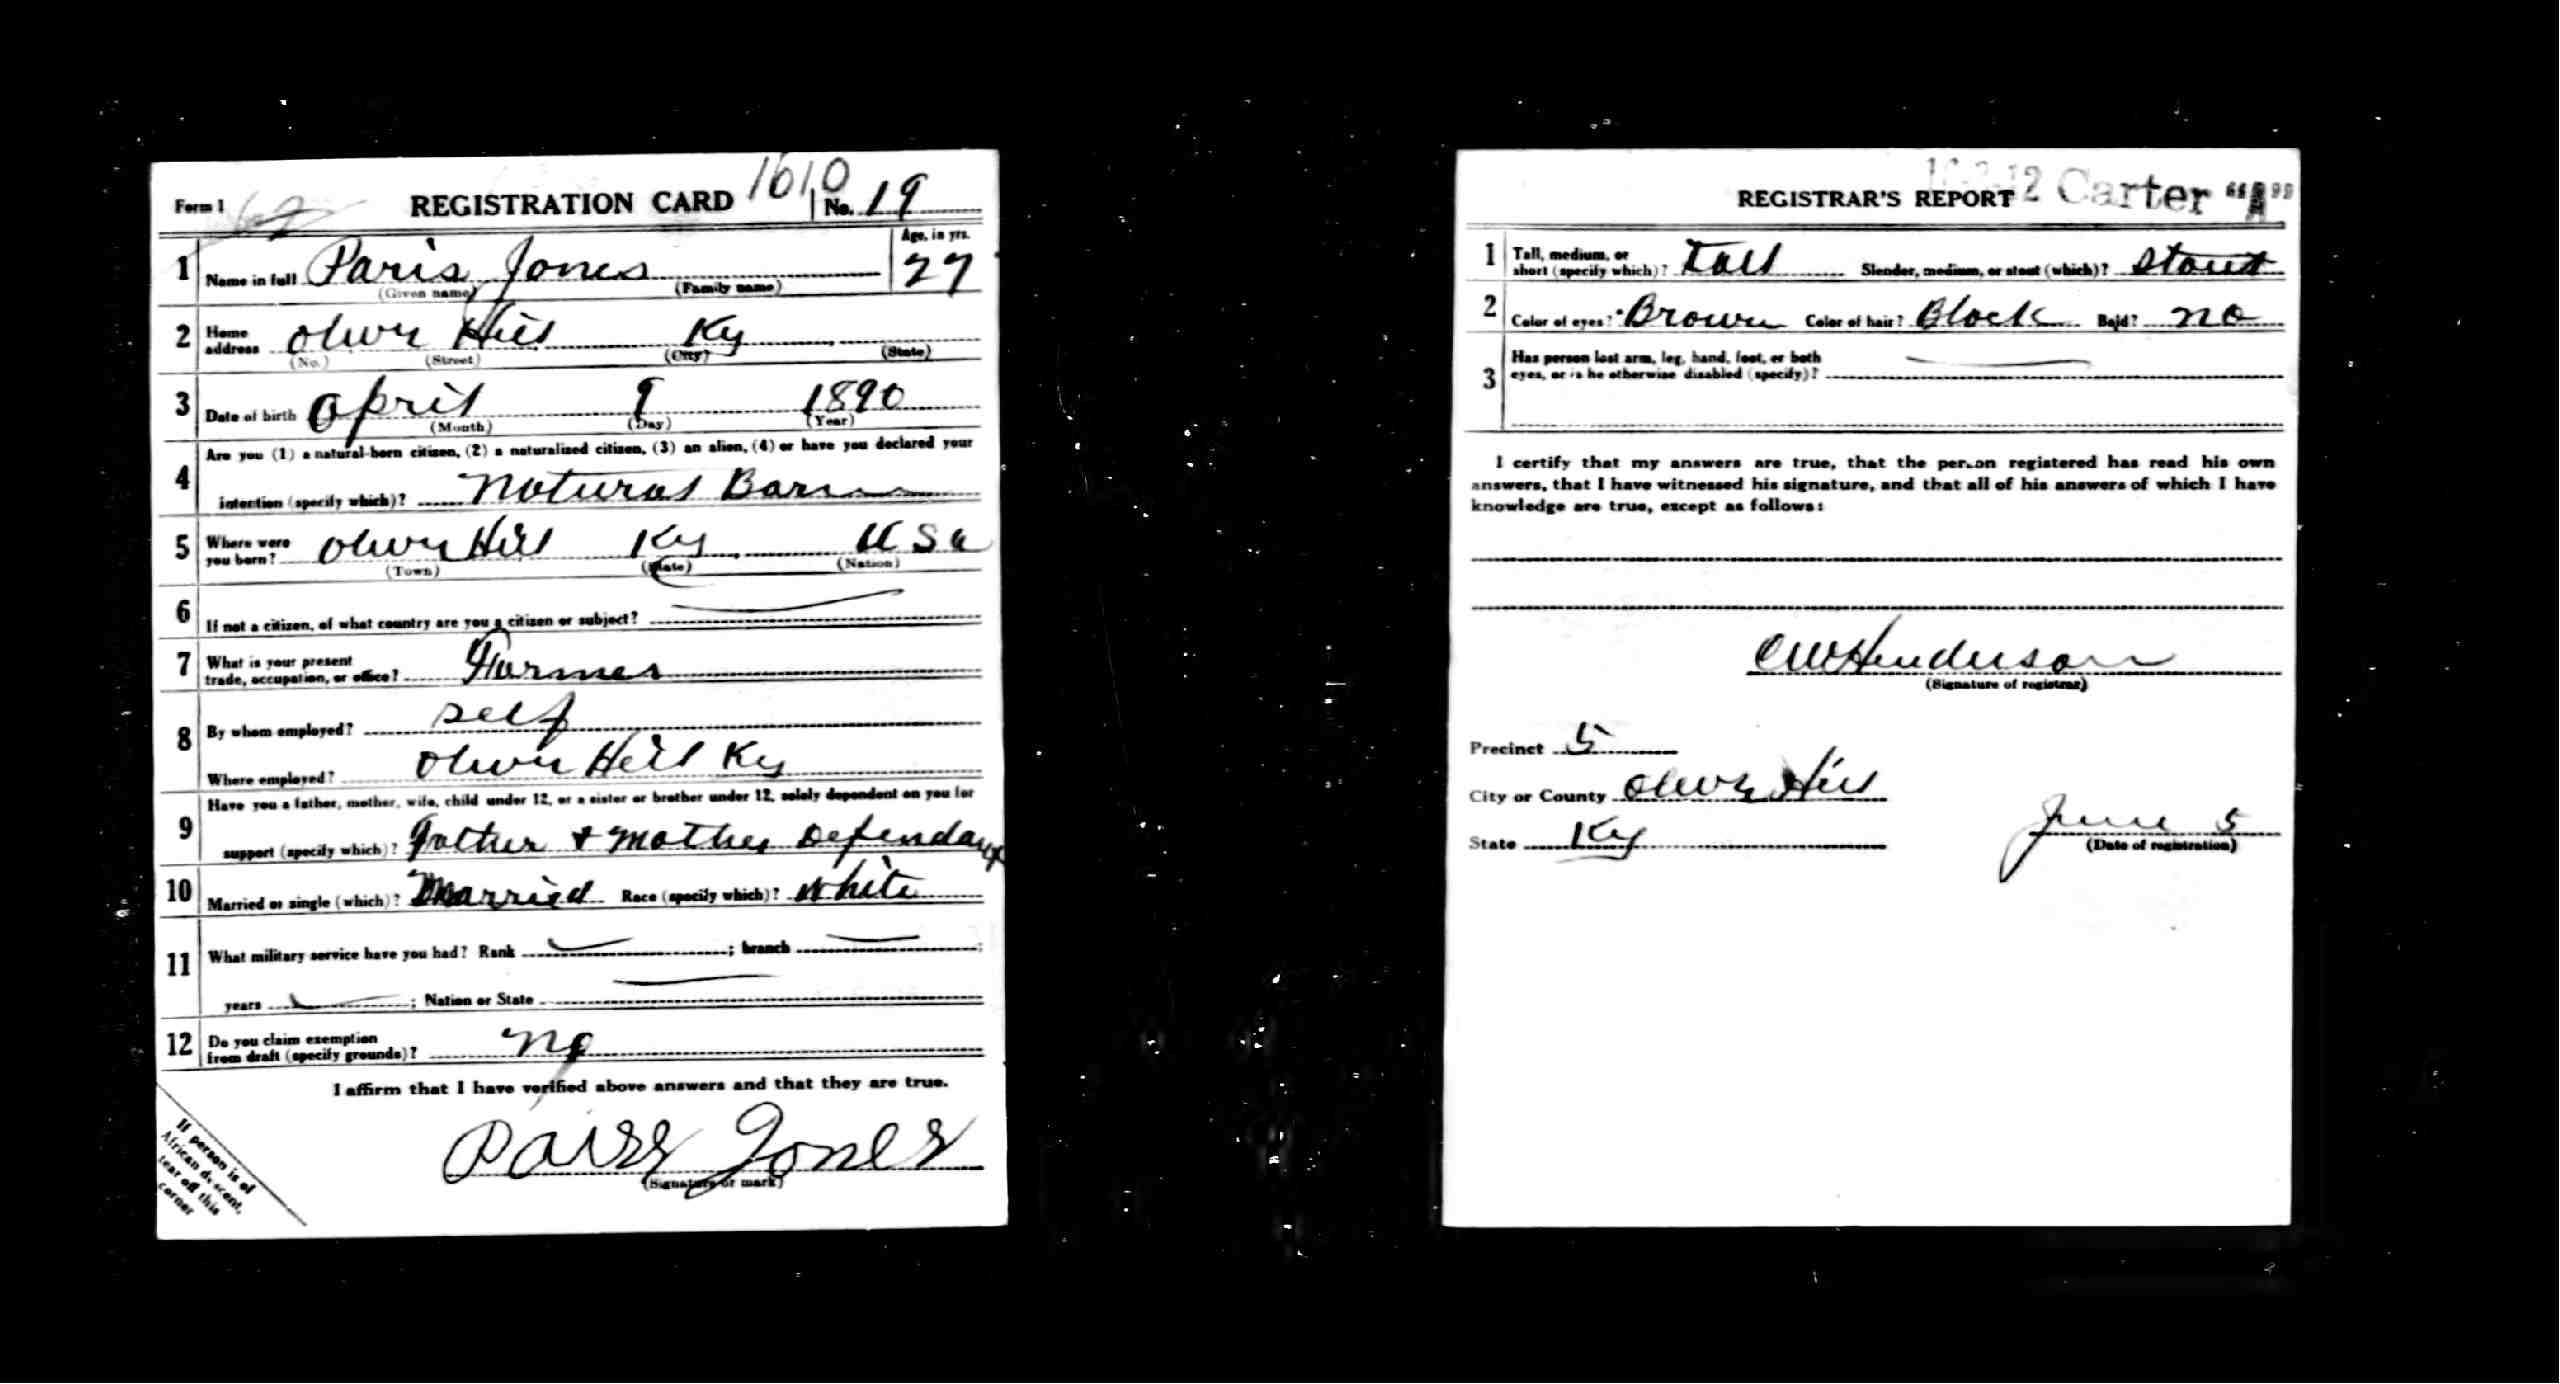 Form 1
REGISTRATION CARD
1610
No. 19
1 Name in full Paris Jones
(Given name) (Family name)
Age, in yrs.
27
2 Home address Oliver Hill Ky
(No.) (Street) (City) (State)
3 Date of birth April 9 1890
(Month) (Day) (Year)
4 Are you (1) a natural-born citizen, (2) a naturalized citizen, (3) an alien, (4) or have you declared your
intention (specify which)? Natural Born
5 Where were you born? Oliver Hill Ky USa
(Town) (State) (Nation)
6 If not a citizen, of what country are you a citizen or subject?
7 What is your present
trade, occupation, or office? Farmer
8 By whom employed? self
Where employed? Oliver Hill Ky
9 Have you a father, mother, wife, child under 12, or a sister or brother under 12, solely dependent on you for
support (specify which)? Father & Mother
10 Married or single (which)? Married Race (specify which)? White
11 What military service have you had? Rank ; branch ;
years ; Nation or State
12 Do you claim exemption
from draft (specify grounds)? no
I affirm that I have verified above answers and that they are true.
Jones
(Signature or mark)
If person is of
African descent,
tear off this
corner
REGISTRAR'S REPORT
Carter "A"
1 Tall, medium, or
short (specify which)? Tall Slender, medium, or stout (which)? stout
2 Color of eyes? Brown Color of hair? Black Bald? no
3 Has person lost arm, leg, hand, foot, or both
eyes, or is he otherwise disabled (specify)?
I certify that my answers are true, that the person registered has read his own
answers, that I have witnessed his signature, and that all of his answers of which I have
knowledge are true, except as follows:
CW Henderson
(Signature of registrar)
Precinct 5
City or County Oliver Hill
State Ky
June 5
(Date of registration)